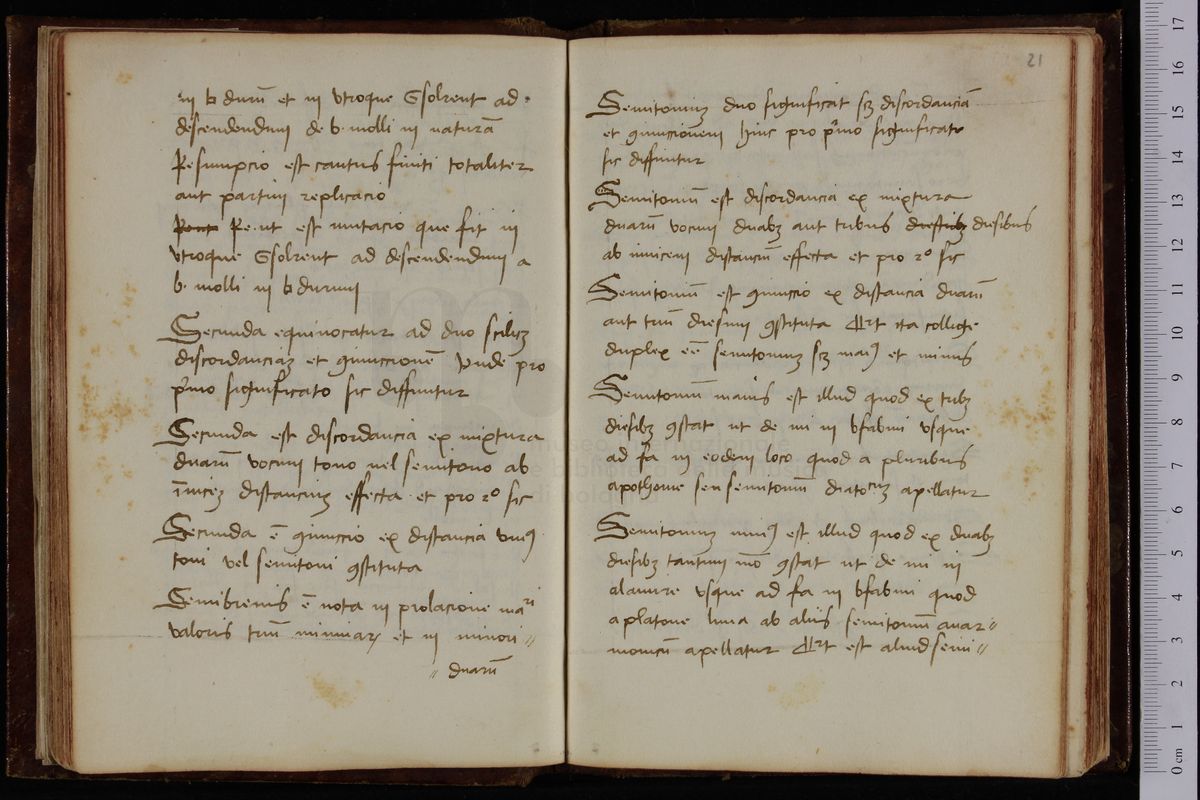 in ♮ durū et in vtroque Gsolreut ad
descendendum de b. molli in naturā
Resumpcio est cantus finiti totaliter
aut partim replicacio
Reut Re.ut est mutacio que fit in
vtroque Gsolreut ad descendendum a
b. molli in ♮ durum
Secunda equiuocatur ad duo scilicꝫ
discordanciaꝫ et ꝯiunccionē Vnde pro
p̄mo significato sic diffinitur
Secunda est discordancia ex mixtura
duarū vocum tono uel semitono ab
īuiceꝫ distanciuꝫ effecta et pro 2º sic
Secunda ē ꝯiunccio ex distancia vniꝰ
toni vel semitoni ꝯstituta
Semibreuis ē nota in prolacione mari
valoris triū minimaꝝ et in minori〃
〃 duarū
21
Semitoniuꝫ duo significat scꝫ discordanciā
et ꝯiunccionem hinc pro p̄mo significato
sic diffinitur
Semitoniū est discordancia ex mixtura
duarū vocum duabꝫ aut tribus diesibus
ab inuicem distanciū effecta et pro 2º sic
Semitoniū est ꝯiunccio ex distancia duarū
aut triū diesum ꝯstituta Et ita collige
duplex eē semitoniuꝫ scꝫ maiꝰ et minus
Semitoniū maius est illud quod ex tribꝫ
diesibꝫ ꝯstat ut de mi in bfabmi vsque
ad fa in eodem loco quod a pluribus
apothome seu semitoniū diatonicuꝫ apellatur
Semitoniuꝫ miniꝰ est illud quod ex duabꝫ
diesibꝫ tantum mō ꝯstat ut de mi in
alamire vsque ad fa in bfabmi quod
a platone lima ab aliis semitoniū enar〃
monicū apellatur Et est aliud semi〃